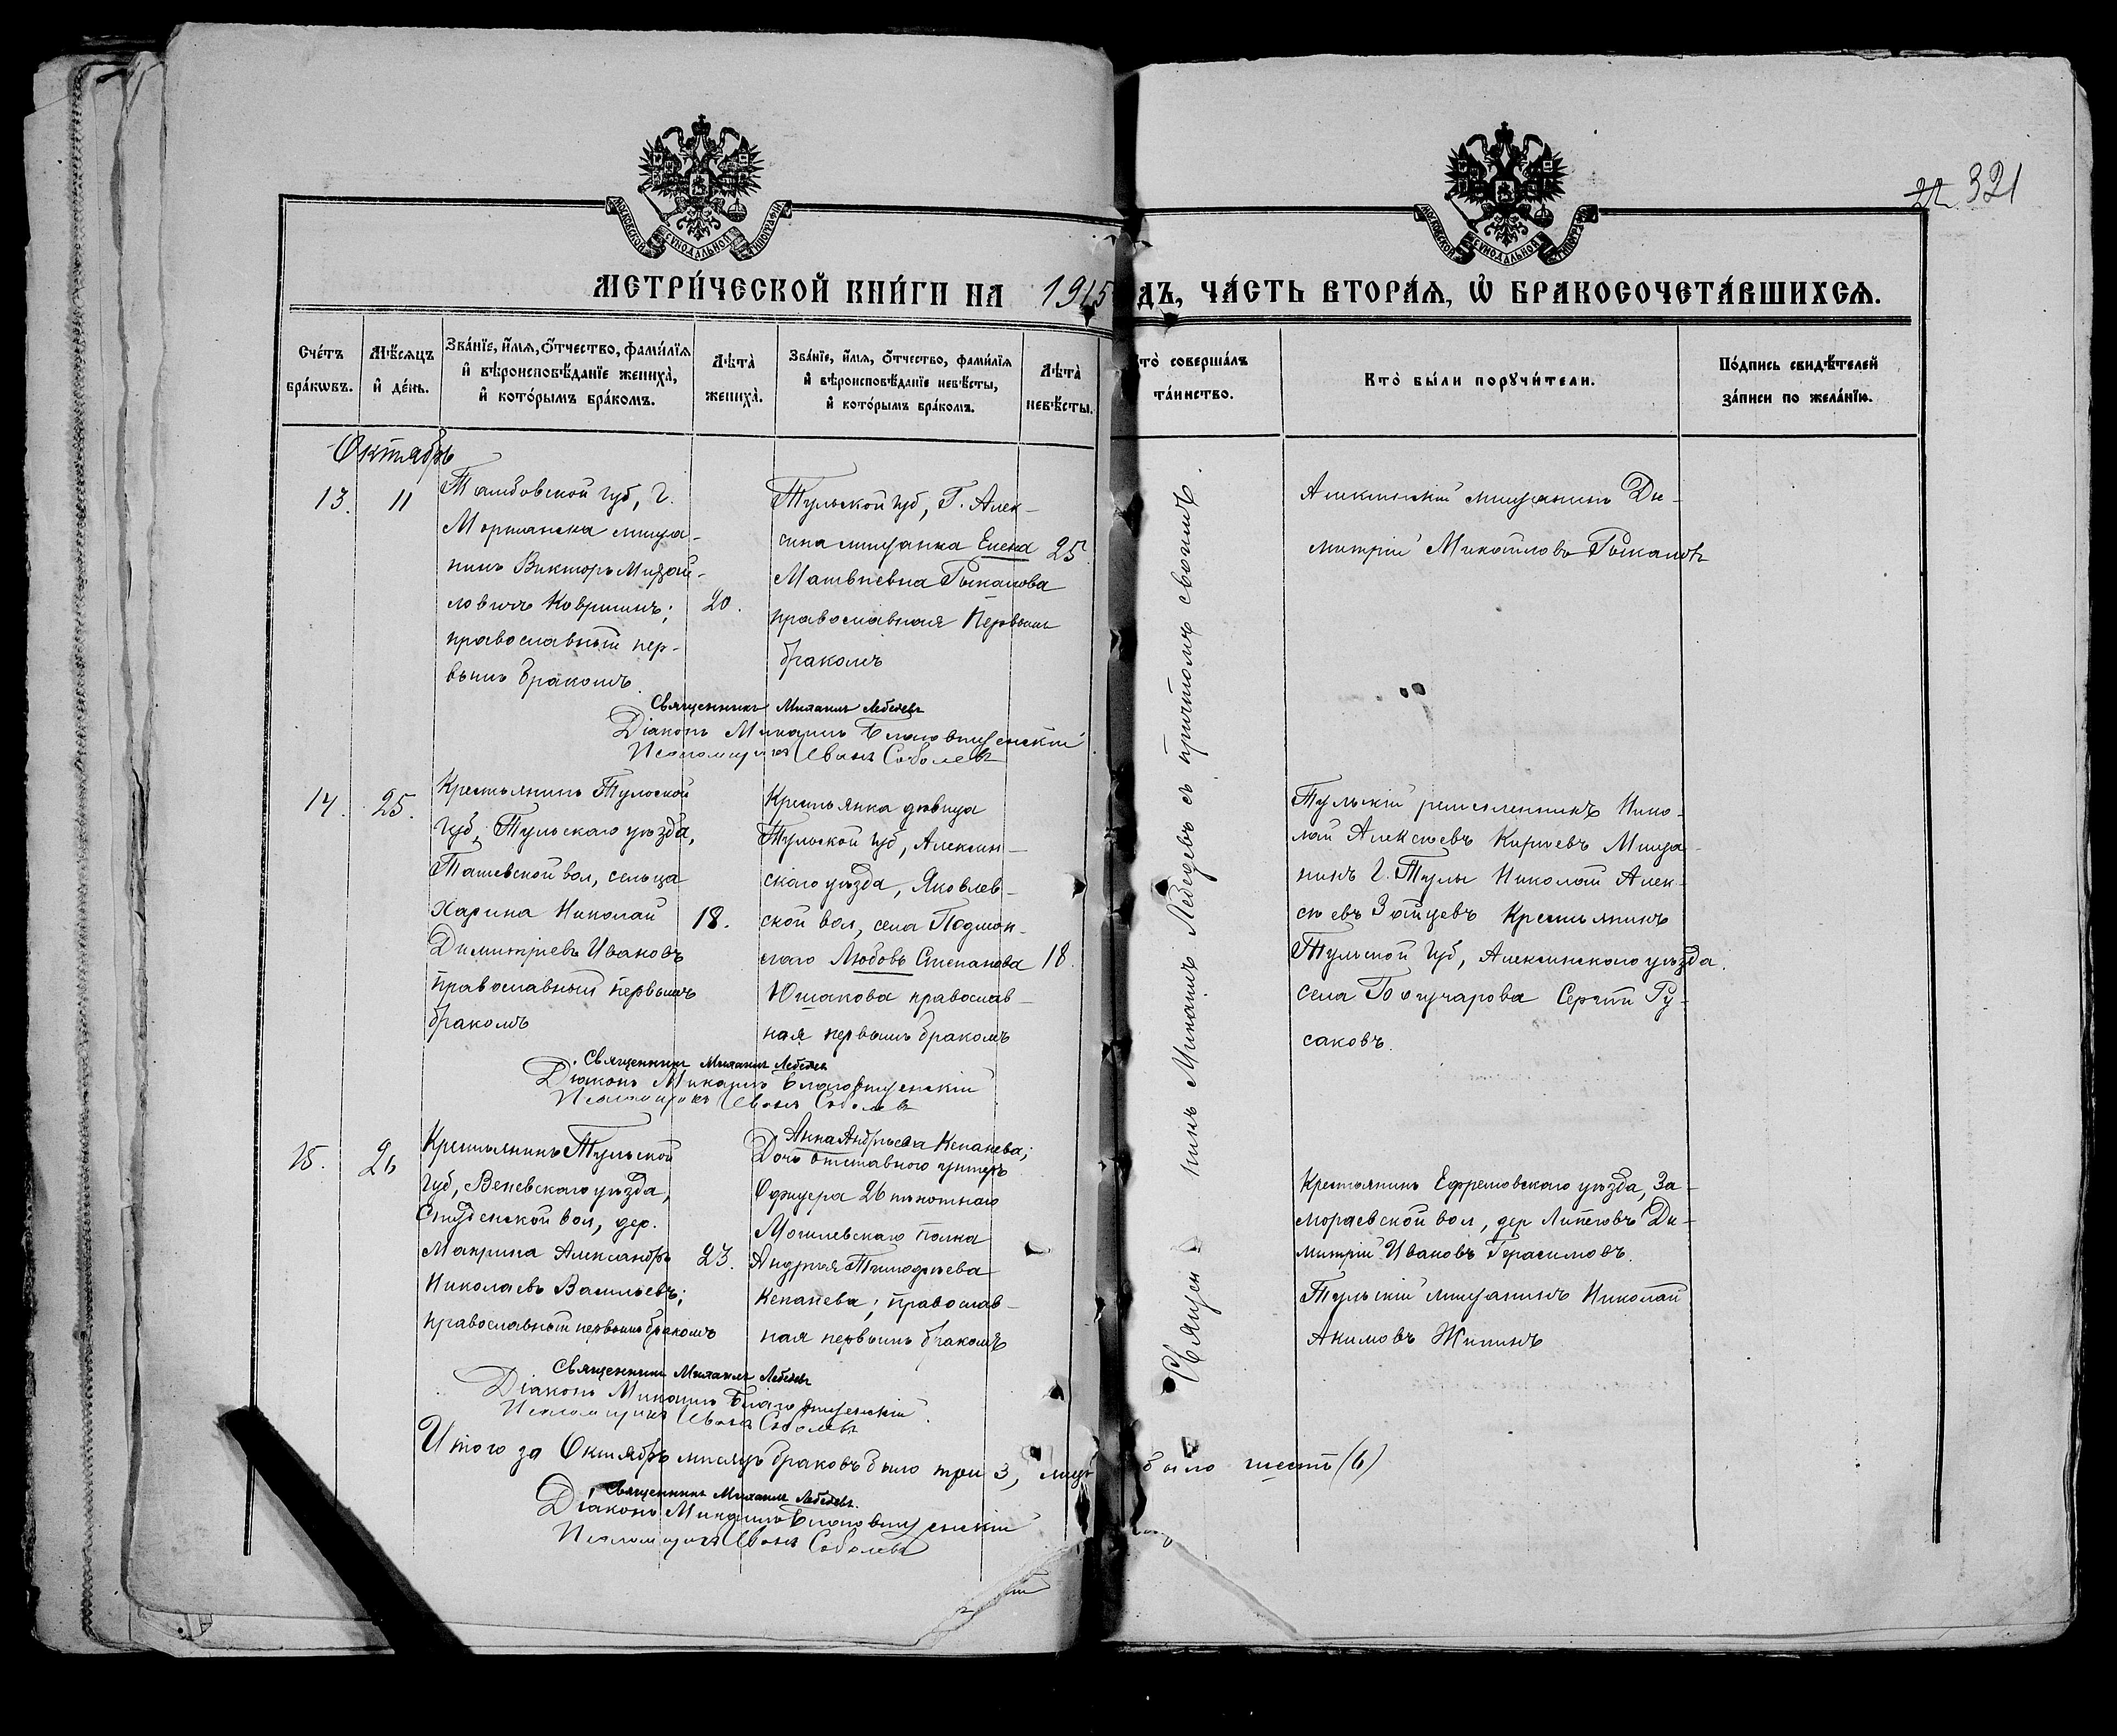 22 321
МОСКОВСКОЙ СѴНОДАЛЬНОЙ ТИПОГРАФІИ
МОСКОВСКОЙ СѴНОДАЛЬНОЙ ТИПОГРАФІИ
МЕТРИ́ЧЕСКОЙ КНИ́ГИ НА 1915 ДЪ, ЧА́СТЬ ВТОРА́Я, Ѽ БРАКОСОЧЕТА́ВШИХСЯ.
Сче́тъ бра́кωвъ.
Мѣ́сяцъ и́ де́нь.
Зва́нїе, и́мя, ѻ́тчество, фами́лїя
и́ вѣроисповѣ́данїе жениха̀,
и́ кото́рымъ бра́комъ.
Лѣта̀ жениха̀.
Зва́нїе, и́мя, ѻ́тчество, фами́лїя
и́ вѣроисповѣ́данїе невѣ́сты,
и́ кото́рымъ бра́комъ.
Лѣта̀ невѣ́сты.
то̀ соверша́лъ
та́инство.
Кто̀ бы́ли порꙋчи́тели.
По́дпись свидѣ́телей
за́писи по жела́нїю.
Октябрь
13. 11
Тамбовской губ, г.
Моршанска мѣща-
нинъ Викторъ Михай-
ловичъ Ковришнъ;
православный пер-
вымъ бракомъ.
20.
Тульской губ, Г. Алек-
сина мѣщанка Елена
Матвѣевна Рыкалова
православная Первымъ
бракомъ
25
Алексинскій мѣщанинъ Ди-
митрій Михайловъ Рыкаловъ
Священникъ Михаилъ Лебедевъ
Діаконъ Михаилъ Благовѣщенскій
Псаломщикъ Иванъ Соболевъ
14. 25.
Крестьянинъ Тульской
губ, Тульскаго уѣзда,
Ташевской вол, сельца
Харина Николай
Димитріевъ Ивановъ
православный первымъ
бракомъ
18.
Крестьянка дѣвица
Тульской губ, Алексин-
скаго уѣзда, Яковлев-
ской вол, села Подмок-
лаго Любовь Степанова
Юшакова православ-
ная первымъ бракомъ
18.
Тульскій ремесленникъ Нико-
лай Алексѣевъ Кирѣевъ Мѣща-
нинъ г. Тулы Николай Алек-
сѣевъ Зайцевъ Крестьянинъ
Тульской губ, Алексинскаго уѣзда.
села Сергѣй Гу-
саковъ.
Священникъ Михаилъ Лебедевъ
Діаконъ Михаилъ Благовѣщенскій
Псаломщикъ Иванъ Соболевъ
15. 26
Крестьянинъ Тульской
губ, Веневскаго уѣзда,
Студенской вол, дер.
Макрина Александръ
Николаевъ Васильевъ;
православный первымъ бракомъ
23.
Анна Андреева Кепанева;
Дочь отставного унтеръ
Офицера 26 пѣхотнаго
Могилевскаго полка
Андрея Тимофѣева
Кепанева; православ-
ная первымъ бракомъ
Крестьянинъ Ефремовскаго уѣзда, За-
мораевской вол, дер Липеговъ Ди-
митрій Ивановъ Герасимовъ.
Тульскій мѣщанинъ Николай
Акимовъ Жилинъ
Священникъ Михаилъ Лебедевъ
Діаконъ Михаилъ Благовѣщенскій
Псаломщикъ Иванъ Соболевъ
Священникъ Михаилъ Лебедевъ съ причтомъ своимъ.
Итого за Октябрь мѣсяцъ браковъ было три 3, лицъ было шесть (6)
Священникъ Михаилъ Лебедевъ.
Діаконъ Михаилъ Благовѣщенскій
Псаломщикъ Иванъ Соболевъ